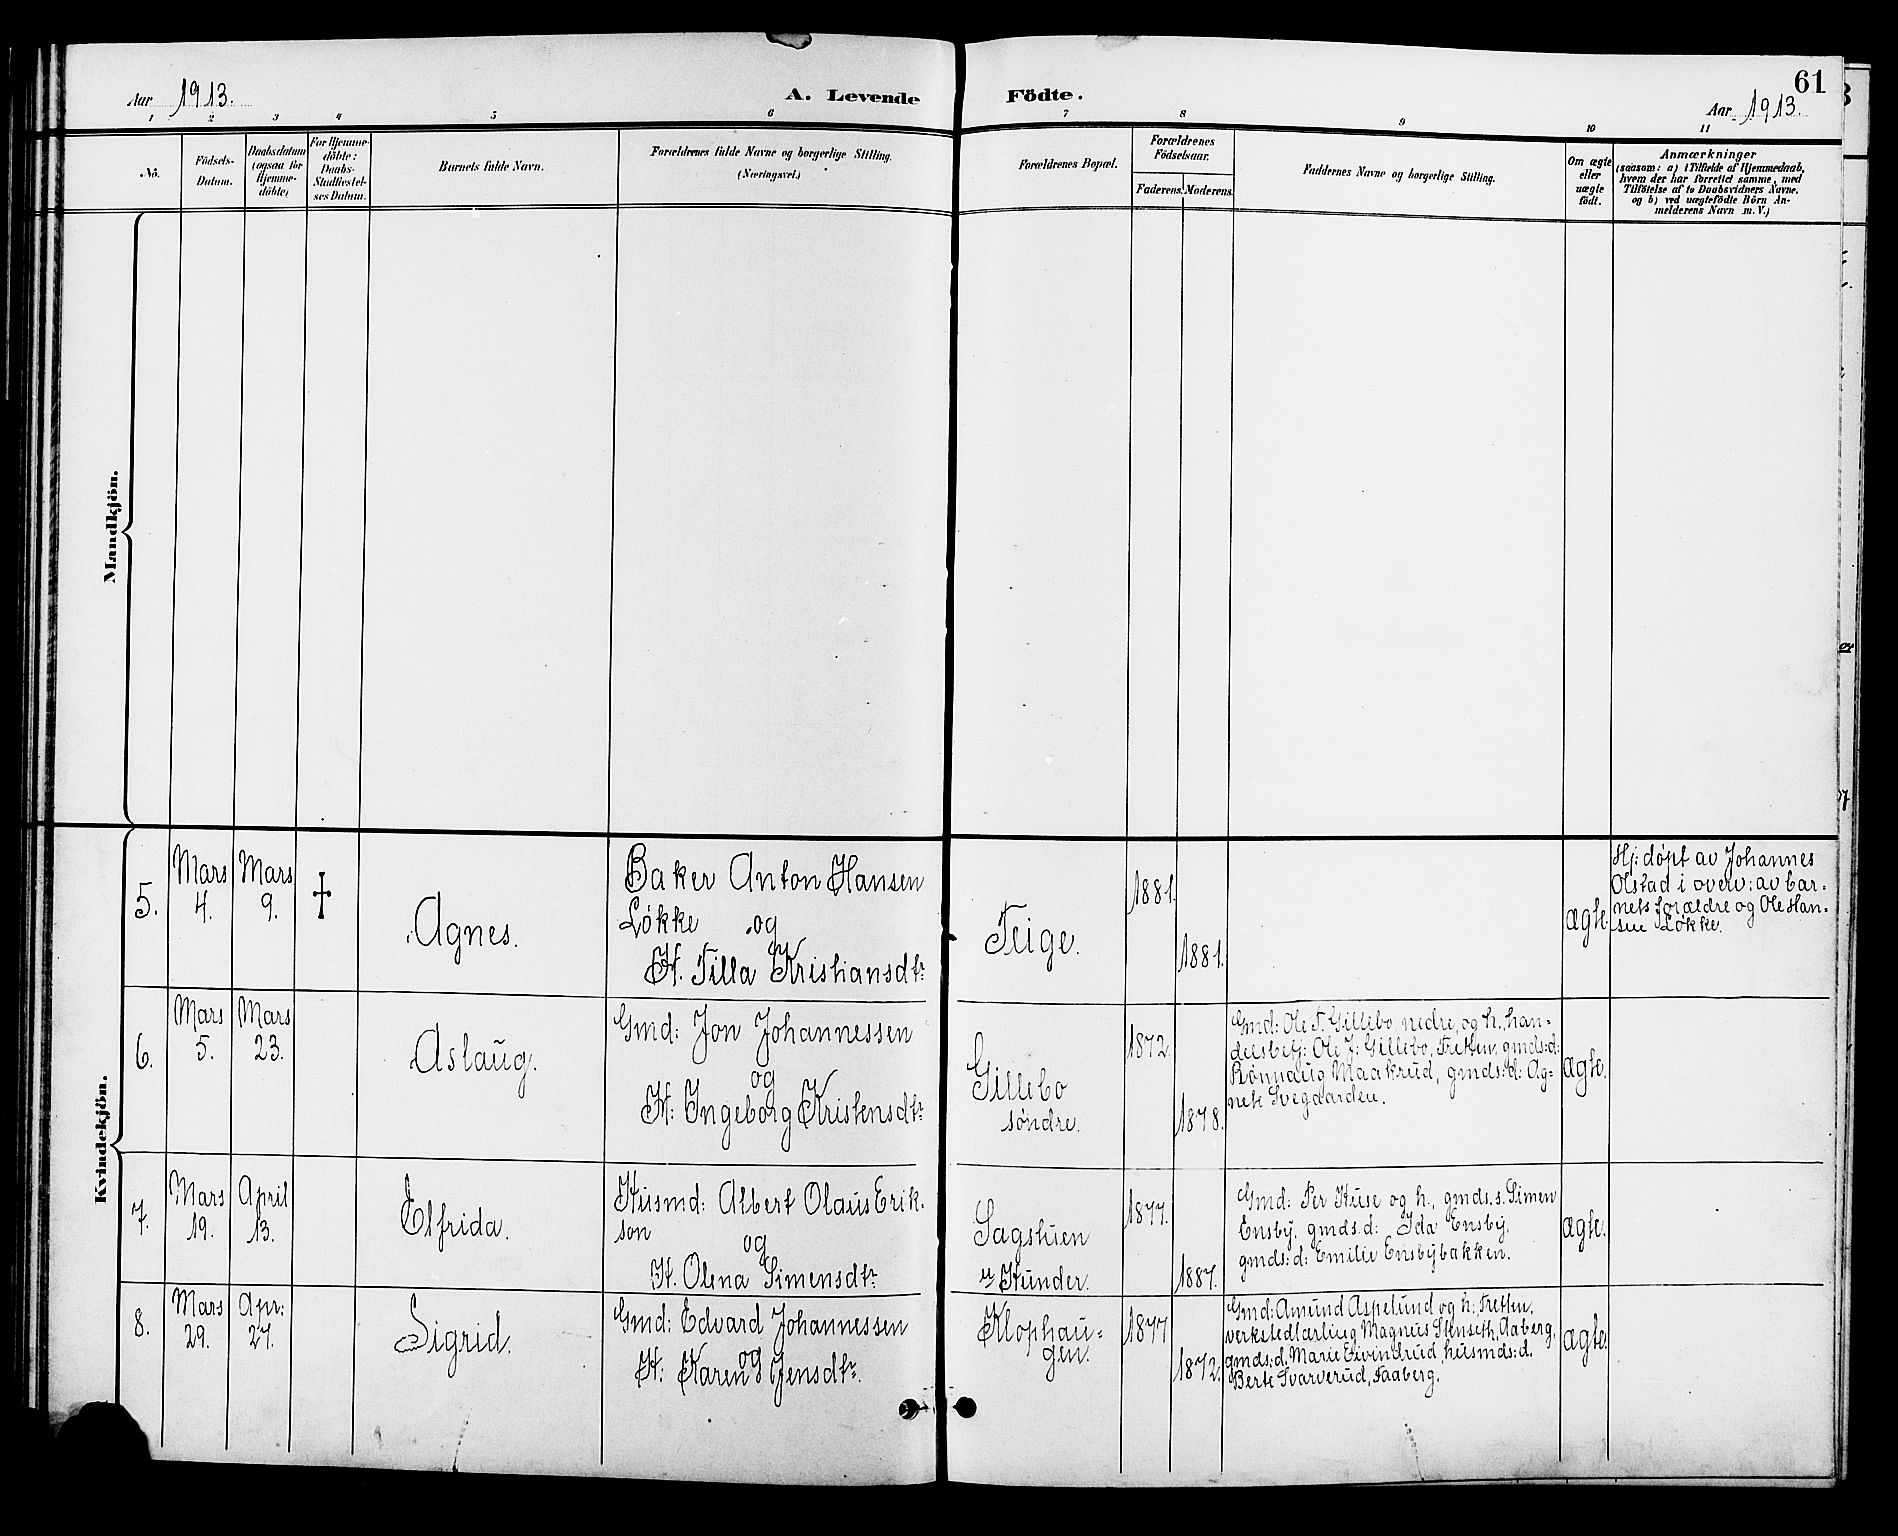 Aar 1913.
A. Levende Födte.
61
Aar 1913.
1 2 3 4 5 6 7 8 9 10 11
No.
Födsels-
Datum.
Daabsdatum
(ogsaa for
Hjemme-
döbte)
For Hjemme-
döbte:
Daabs-
Stadfæstel-
ses Datum.
Barnets fulde Navn.
Forældrenes fulde Navne og borgerlige Stilling.
(Næringsvei.)
Forældrenes Bopæl.
Forældrenes
Födselsaar.
Faderens. Moderens.
Faddernes Navne og borgerlige Stilling.
Om ægte
eller
uægte
födt.
Anmærkninger
(saasom: a) i Tilfælde af Hjemmedaab,
hvem der har forrettet samme, med
Tilföielse af to Daabsvidners Navne.
og b) ved uægtefödte Börn An-
melderens Navn m. V.)
Mandkjön.
Kvindekjön.
5.
Mars
4.
Mars
9.
†
Agnes.
Baker Anton Hansen
Løkke og
H. Tilla Kristiansdtr
Teige.
1881.
1881.
ægte
Hj: døpt av Johannes
Olstad i overv: av bar-
nets forældre og Ole Han-
sen Løkke.
6.
Mars
5.
Mars
23.
Aslaug.
Gmd: Jon Johannessen
og
H: Ingeborg Kristensdtr
Gillebo
søndre.
1872.
1878.
Gmd: Ole T. Gillebo nedre, og h, han-
delsbetj: Ole J. Gillebo, Tretten, gmds:d:
Rønnaug Maakrud, gmds:d: Ag-
nete Svegaarden.
ægte.
7.
Mars
19.
April
13.
Elfrida.
Husmd: Albert Olaus Erik-
son
og
H. Olena Simensdtr
Sagstuen
u/ Hunder.
1877.
1887.
Gmd: Per Huse og h., gmds.s. Simen
Ensby, gmds.d: Ida Ensby,
gmds:d: Emilie Ensbybakken.
ægte.
8.
Mars
29.
Apr:
27.
Sigrid.
Gmd: Edvard Johannessen
og
H: Karen Jensdtr.
Klophau-
gen.
1877
1872.
Gmd: Amund Aspelund og h: Tretten.
verkstedlærling Magnus Stenseth, Aaberg,
gmds:d. Marie Eivindrud, husmds:d.
Berte Svarverud, Faaberg.
ægte.